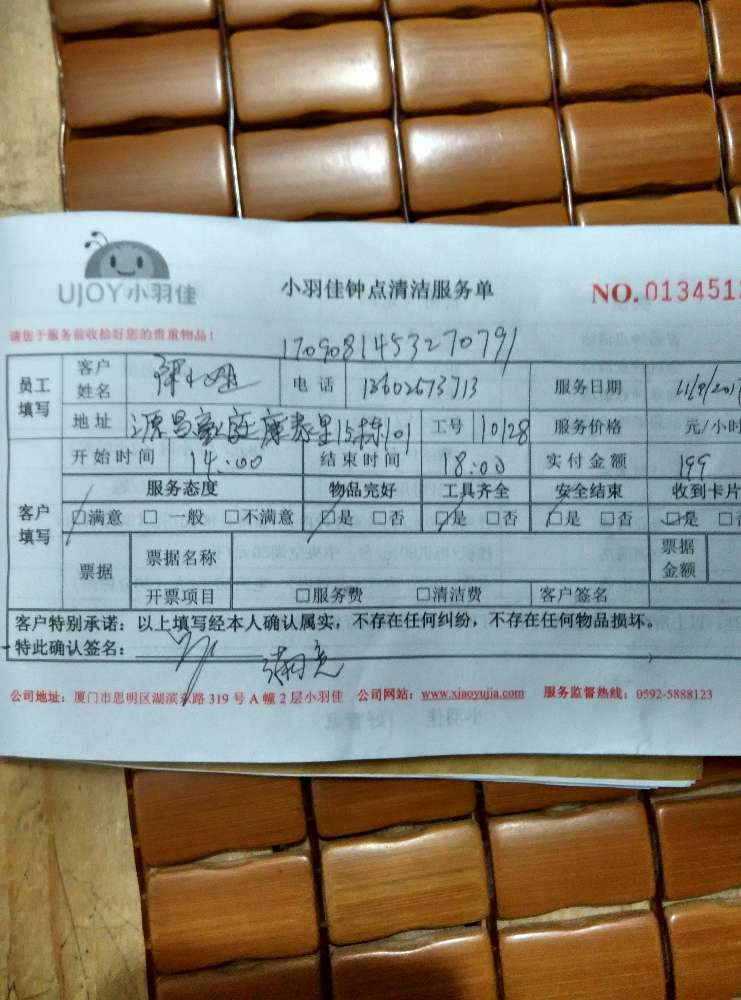 UJOY小羽佳
小羽佳钟点清洁服务单
NO. 0134512
请您于服务前收拾好您的贵重物品!
1709081453270791
员工填写 客户姓名 小姐 电话 13602673713 服务日期
地址 源昌豪庭摩泰里15栋101 工号 10128 服务价格 元/小时
开始时间 14:00 结束时间 18:00 实付金额 199
客户填写 服务态度 物品完好 工具齐全 安全结束 收到卡片
□满意 □一般 □不满意 □是 □否 □是 □否 □是 □否 □是
票据 票据名称 票据金额
开票项目 □服务费 □清洁费 客户签名
客户特别承诺:以上填写经本人确认属实,不存在任何纠纷,不存在任何物品损坏。
特此确认签名:
公司地址:厦门市思明区湖滨东路 319 号 A 幢 2 层小羽佳 公司网站:www.xiaoyujia.com 服务监督热线:0592-5888123